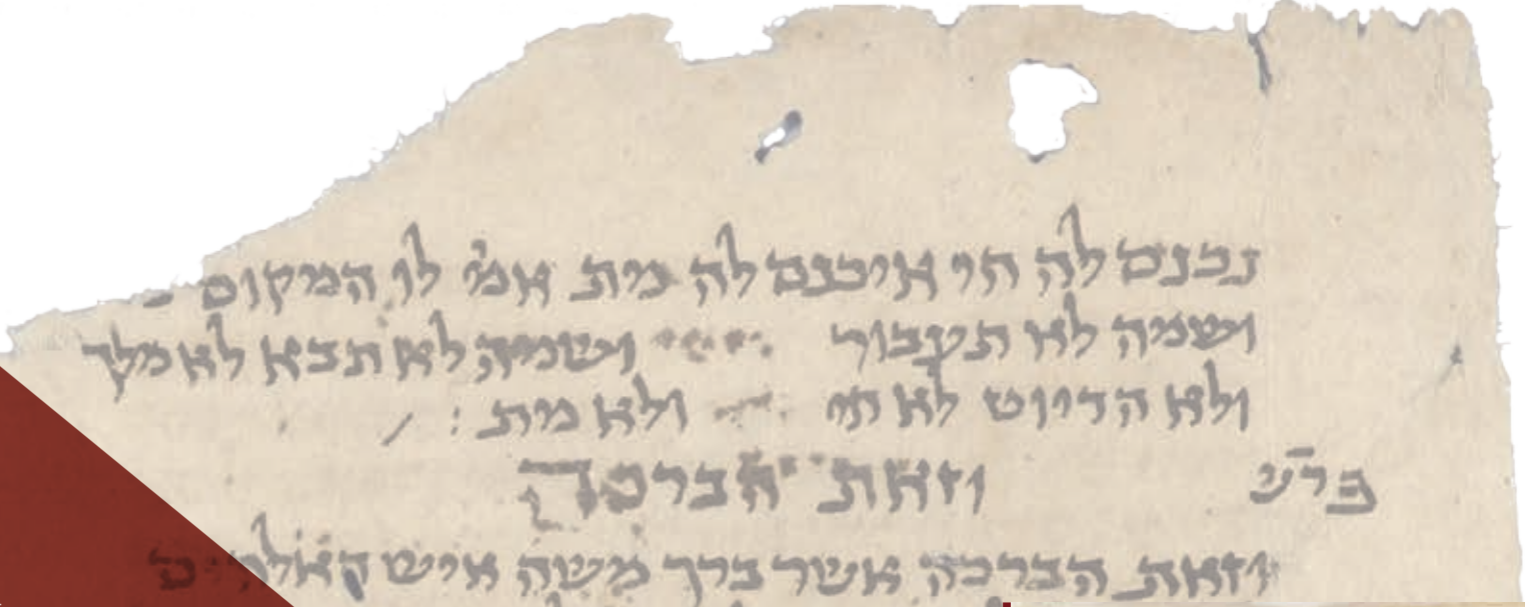 נכנס לה חי איכנס לה מת אמ׳ לו המקום
ושמה לא תעבור ושמה לא תבא לא מלך
ולא הדיוט לא חי ולא מת :
פרש וזאת הברכה
וזאת הברכה אשר ברך משה איש האלהים